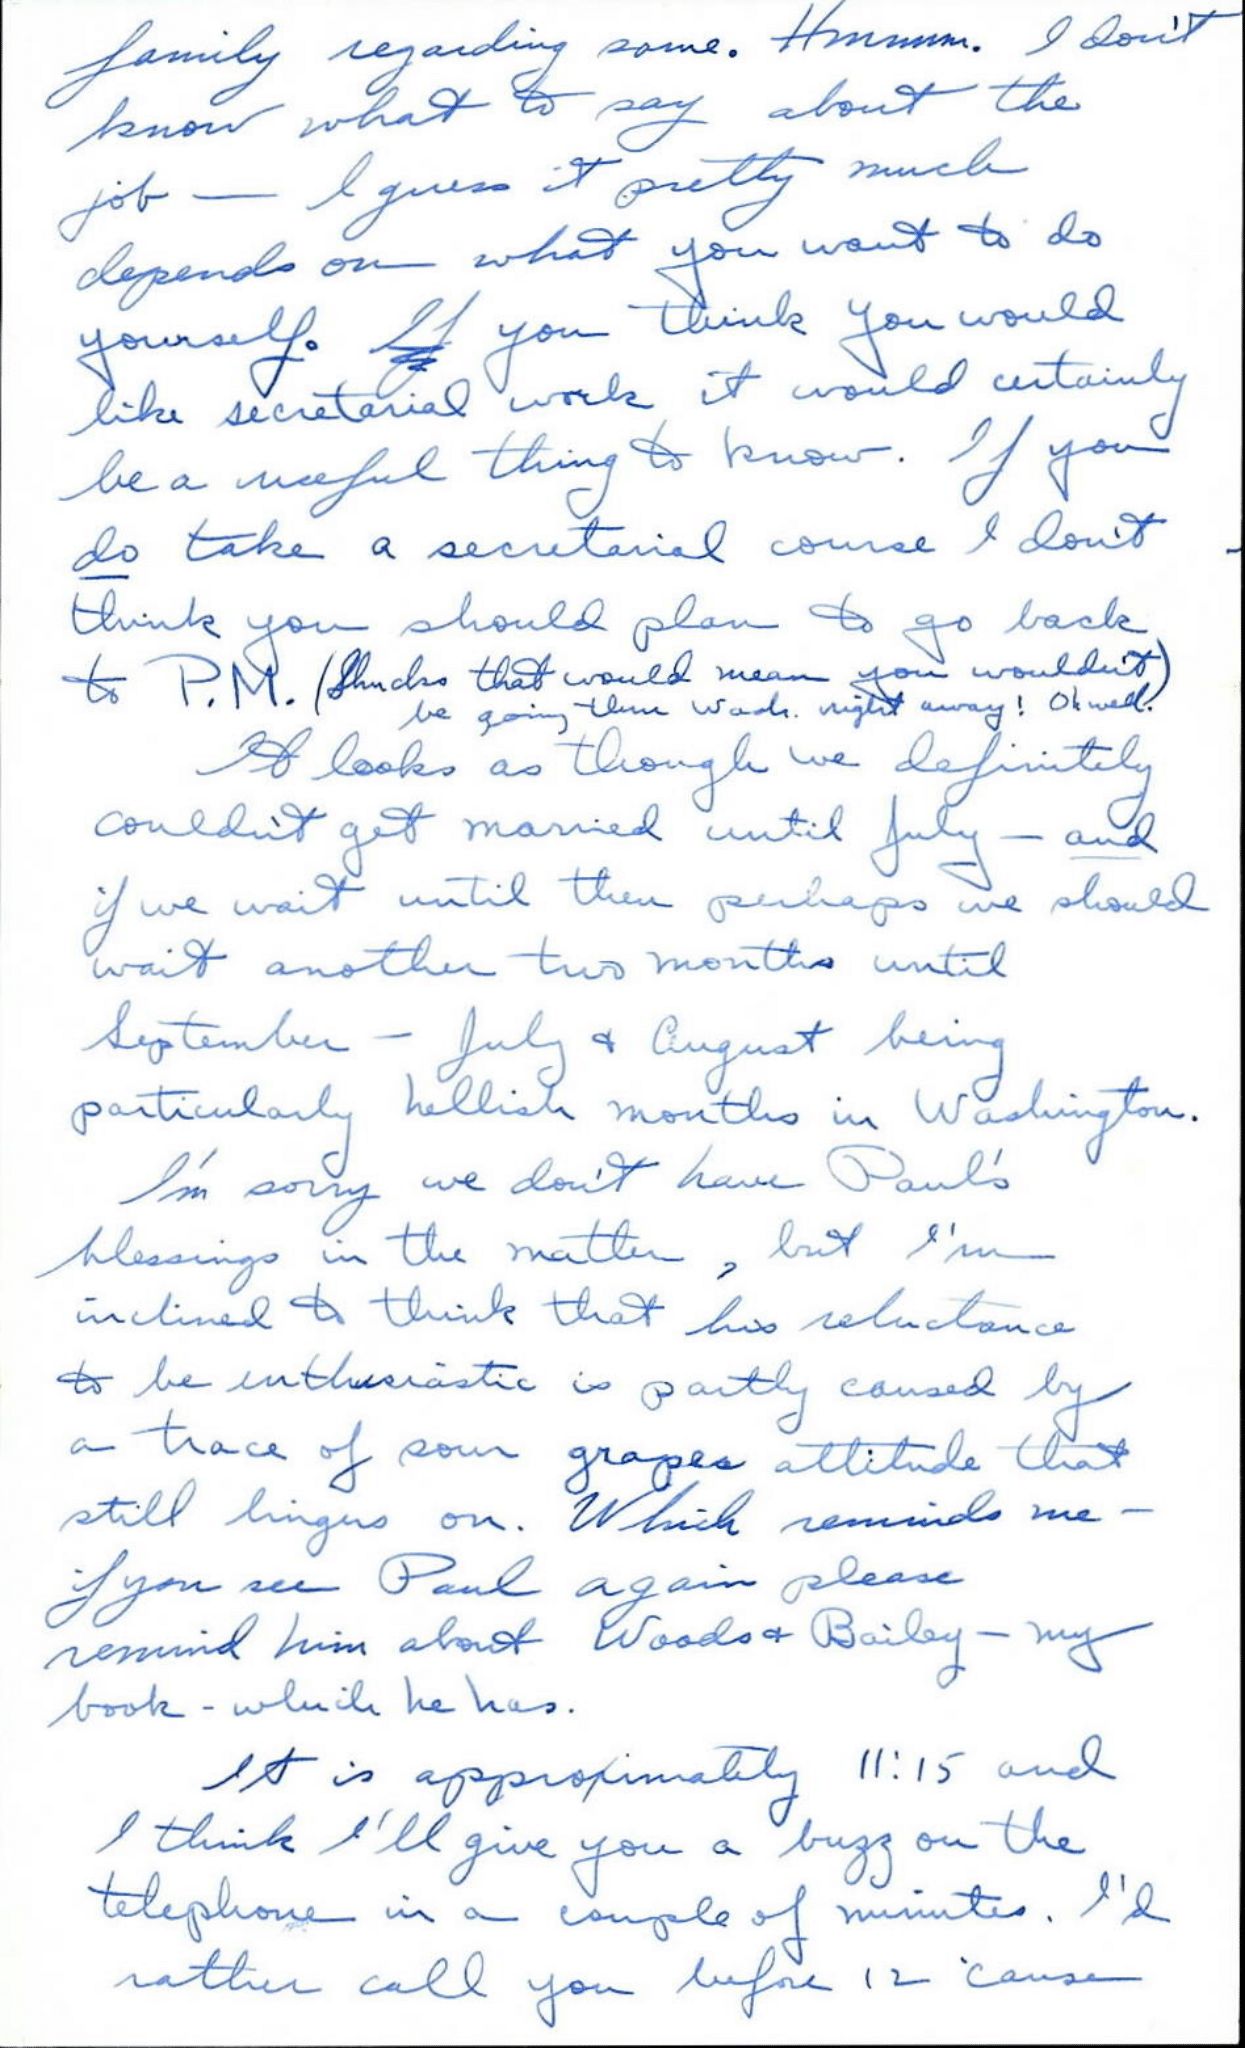 family regarding same. Hmmmm. I don't
know what to say about the
job — I guess it pretty much
depends on what you want to do
yourself. If you think you would
like secretarial work it would certainly
be a useful thing to know. If you
do take a secretarial course I don't
think you should plan to go back
to P.M. (Shucks that would mean you wouldn't
be going thru Wash. right away! Oh well.)
It looks as though we definitely
couldn't get married until July — and
if we wait until then perhaps we should
wait another two months until
September — July & August being
particularly hellish months in Washington.
I'm sorry we don't have Paul's
blessings in the matter, but I'm
inclined to think that his reluctance
to be enthusiastic is partly caused by
a trace of sour grapes attitude that
still lingers on. Which reminds me —
if you see Paul again please
remind him about Woods & Bailey — my
book - which he has.
It is approximately 11:15 and
I think I'll give you a buzz on the
telephone in a couple of minutes. I'd
rather call you before 12 'cause